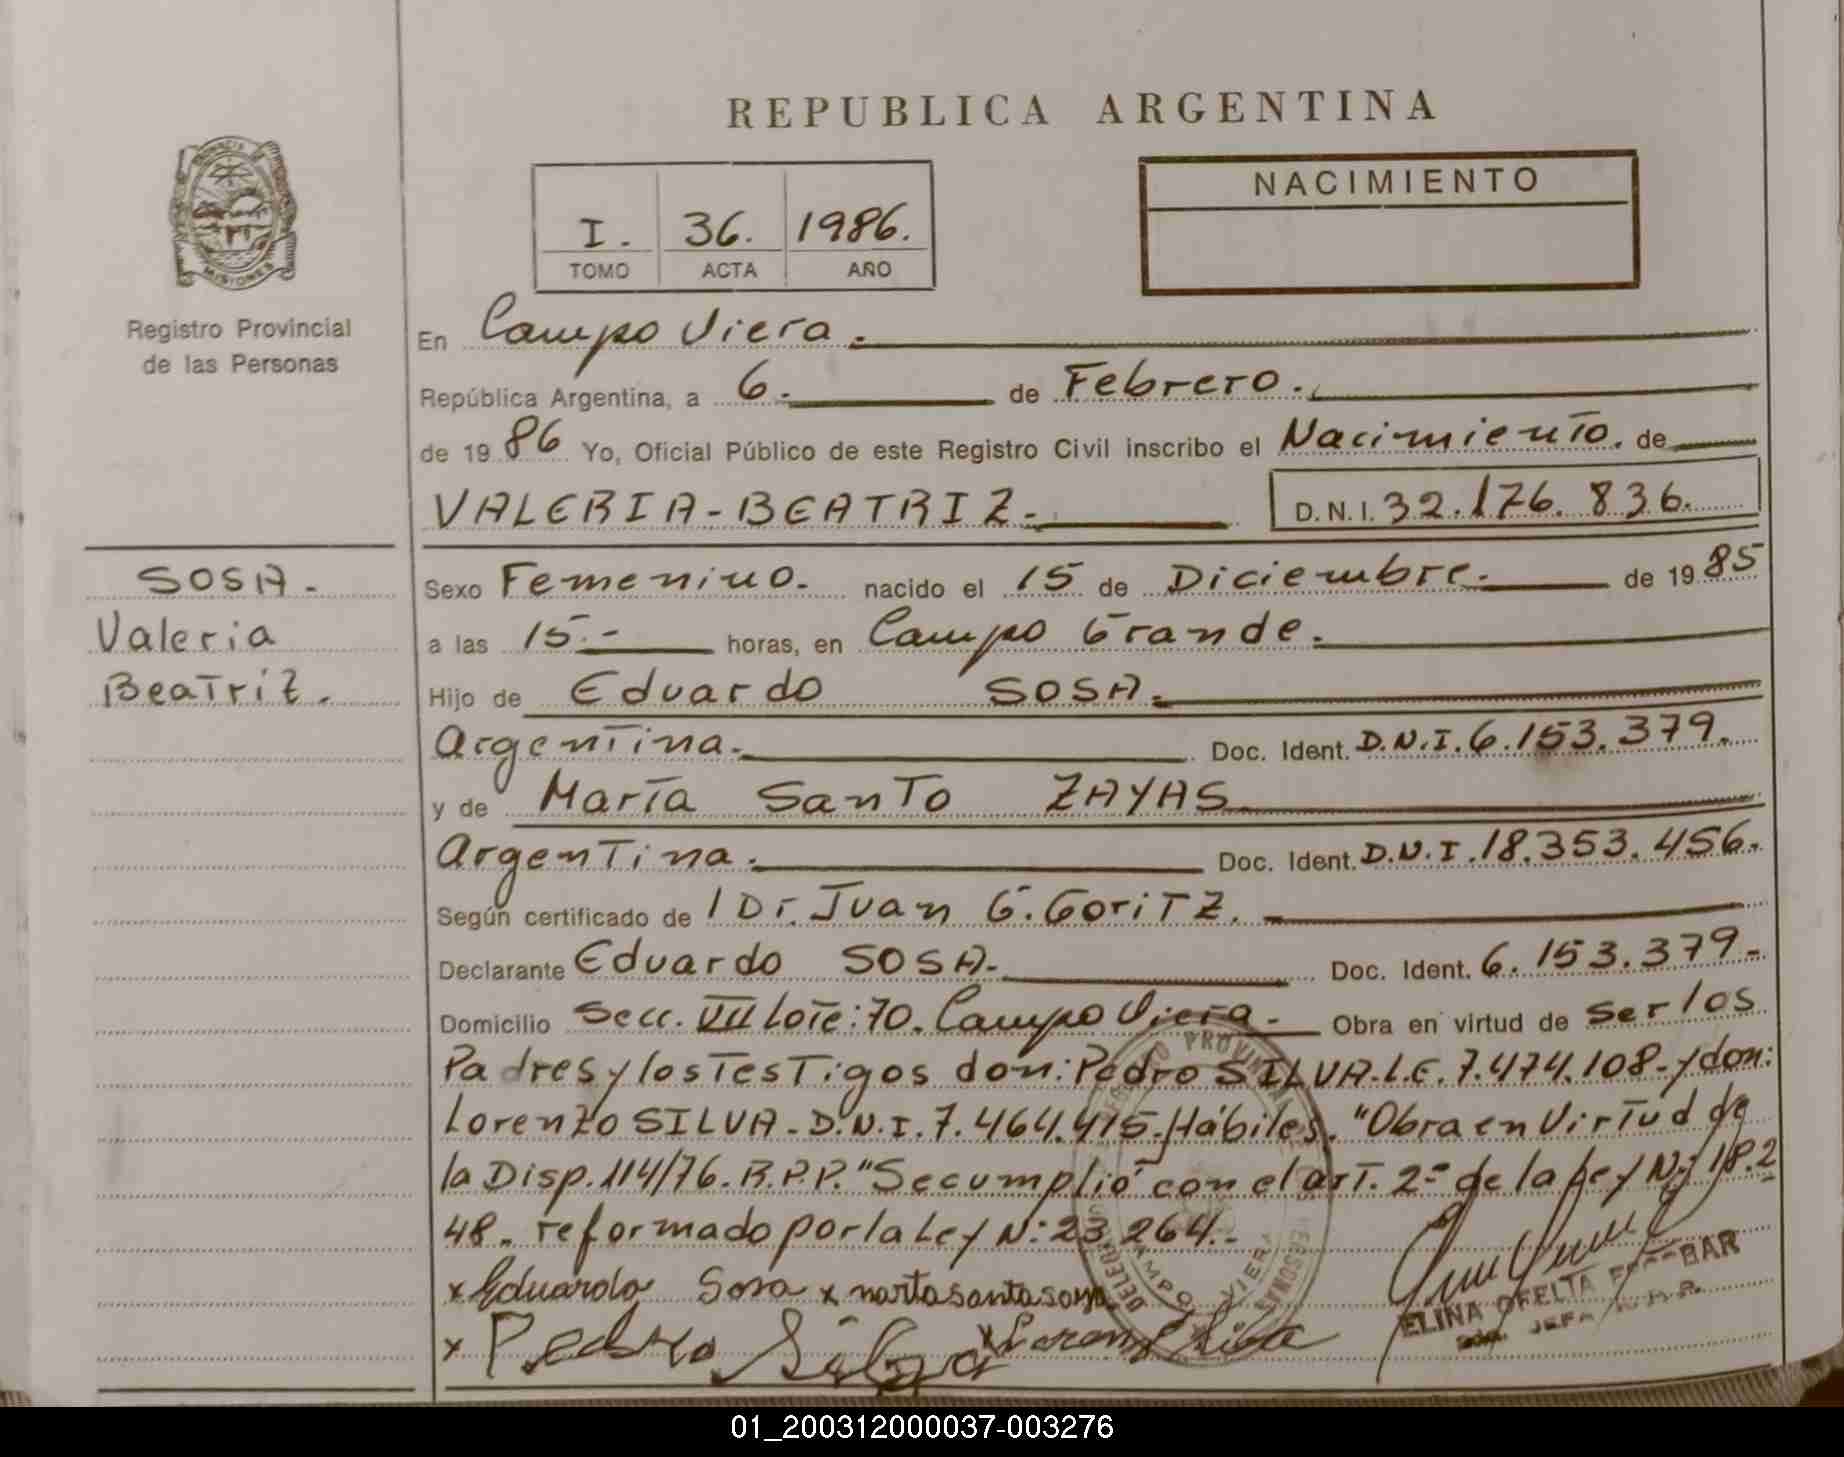 REPUBLICA ARGENTINA
PROVINCIA DE
MISIONES
Registro Provincial
de las Personas
I. 36. 1986.
TOMO ACTA AÑO
NACIMIENTO
En Campo Viera.
República Argentina, a 6. de Febrero.
de 19 86 Yo, Oficial Público de este Registro Civil inscribo el Nacimiento. de
VALERIA-BEATRIZ- D.N.I. 32.176.836.
SOSA-
Valeria
Beatriz.
Sexo Femenino. nacido el 15 de Diciembre. de 19 85
a las 15.- horas, en Campo Grande.
Hijo de Eduardo SOSA.
Argentina. Doc. Ident. D.N.I. 6.153.379.
y de María Santo ZAYAS
Argentina. Doc. Ident. D.N.I. 18.353.456.
Según certificado de l Dr. Juan G. GoriTZ.
Declarante Eduardo SOSA- Doc. Ident. 6.153.379-
Domicilio Secc. VII Lote: 70. Campo Viera- Obra en virtud de Ser los
Padres y los Testigos don: Pedro SILVA-L.E. 7.474.108-y don:
Lorenzo SILVA-D.N.I. 7.464.415. Hábiles. "Obra en Virtud de
la Disp. 114/76. R.P.P." Se cumplió con el art. 2º de la Ley N: 18.2
48. reformado por la Ley N: 23 264.-
x Eduardo Sosa x
x Pedro Silva x
ELINA OFELIA
JEFA
CAMPO VIERA
01_200312000037-003276